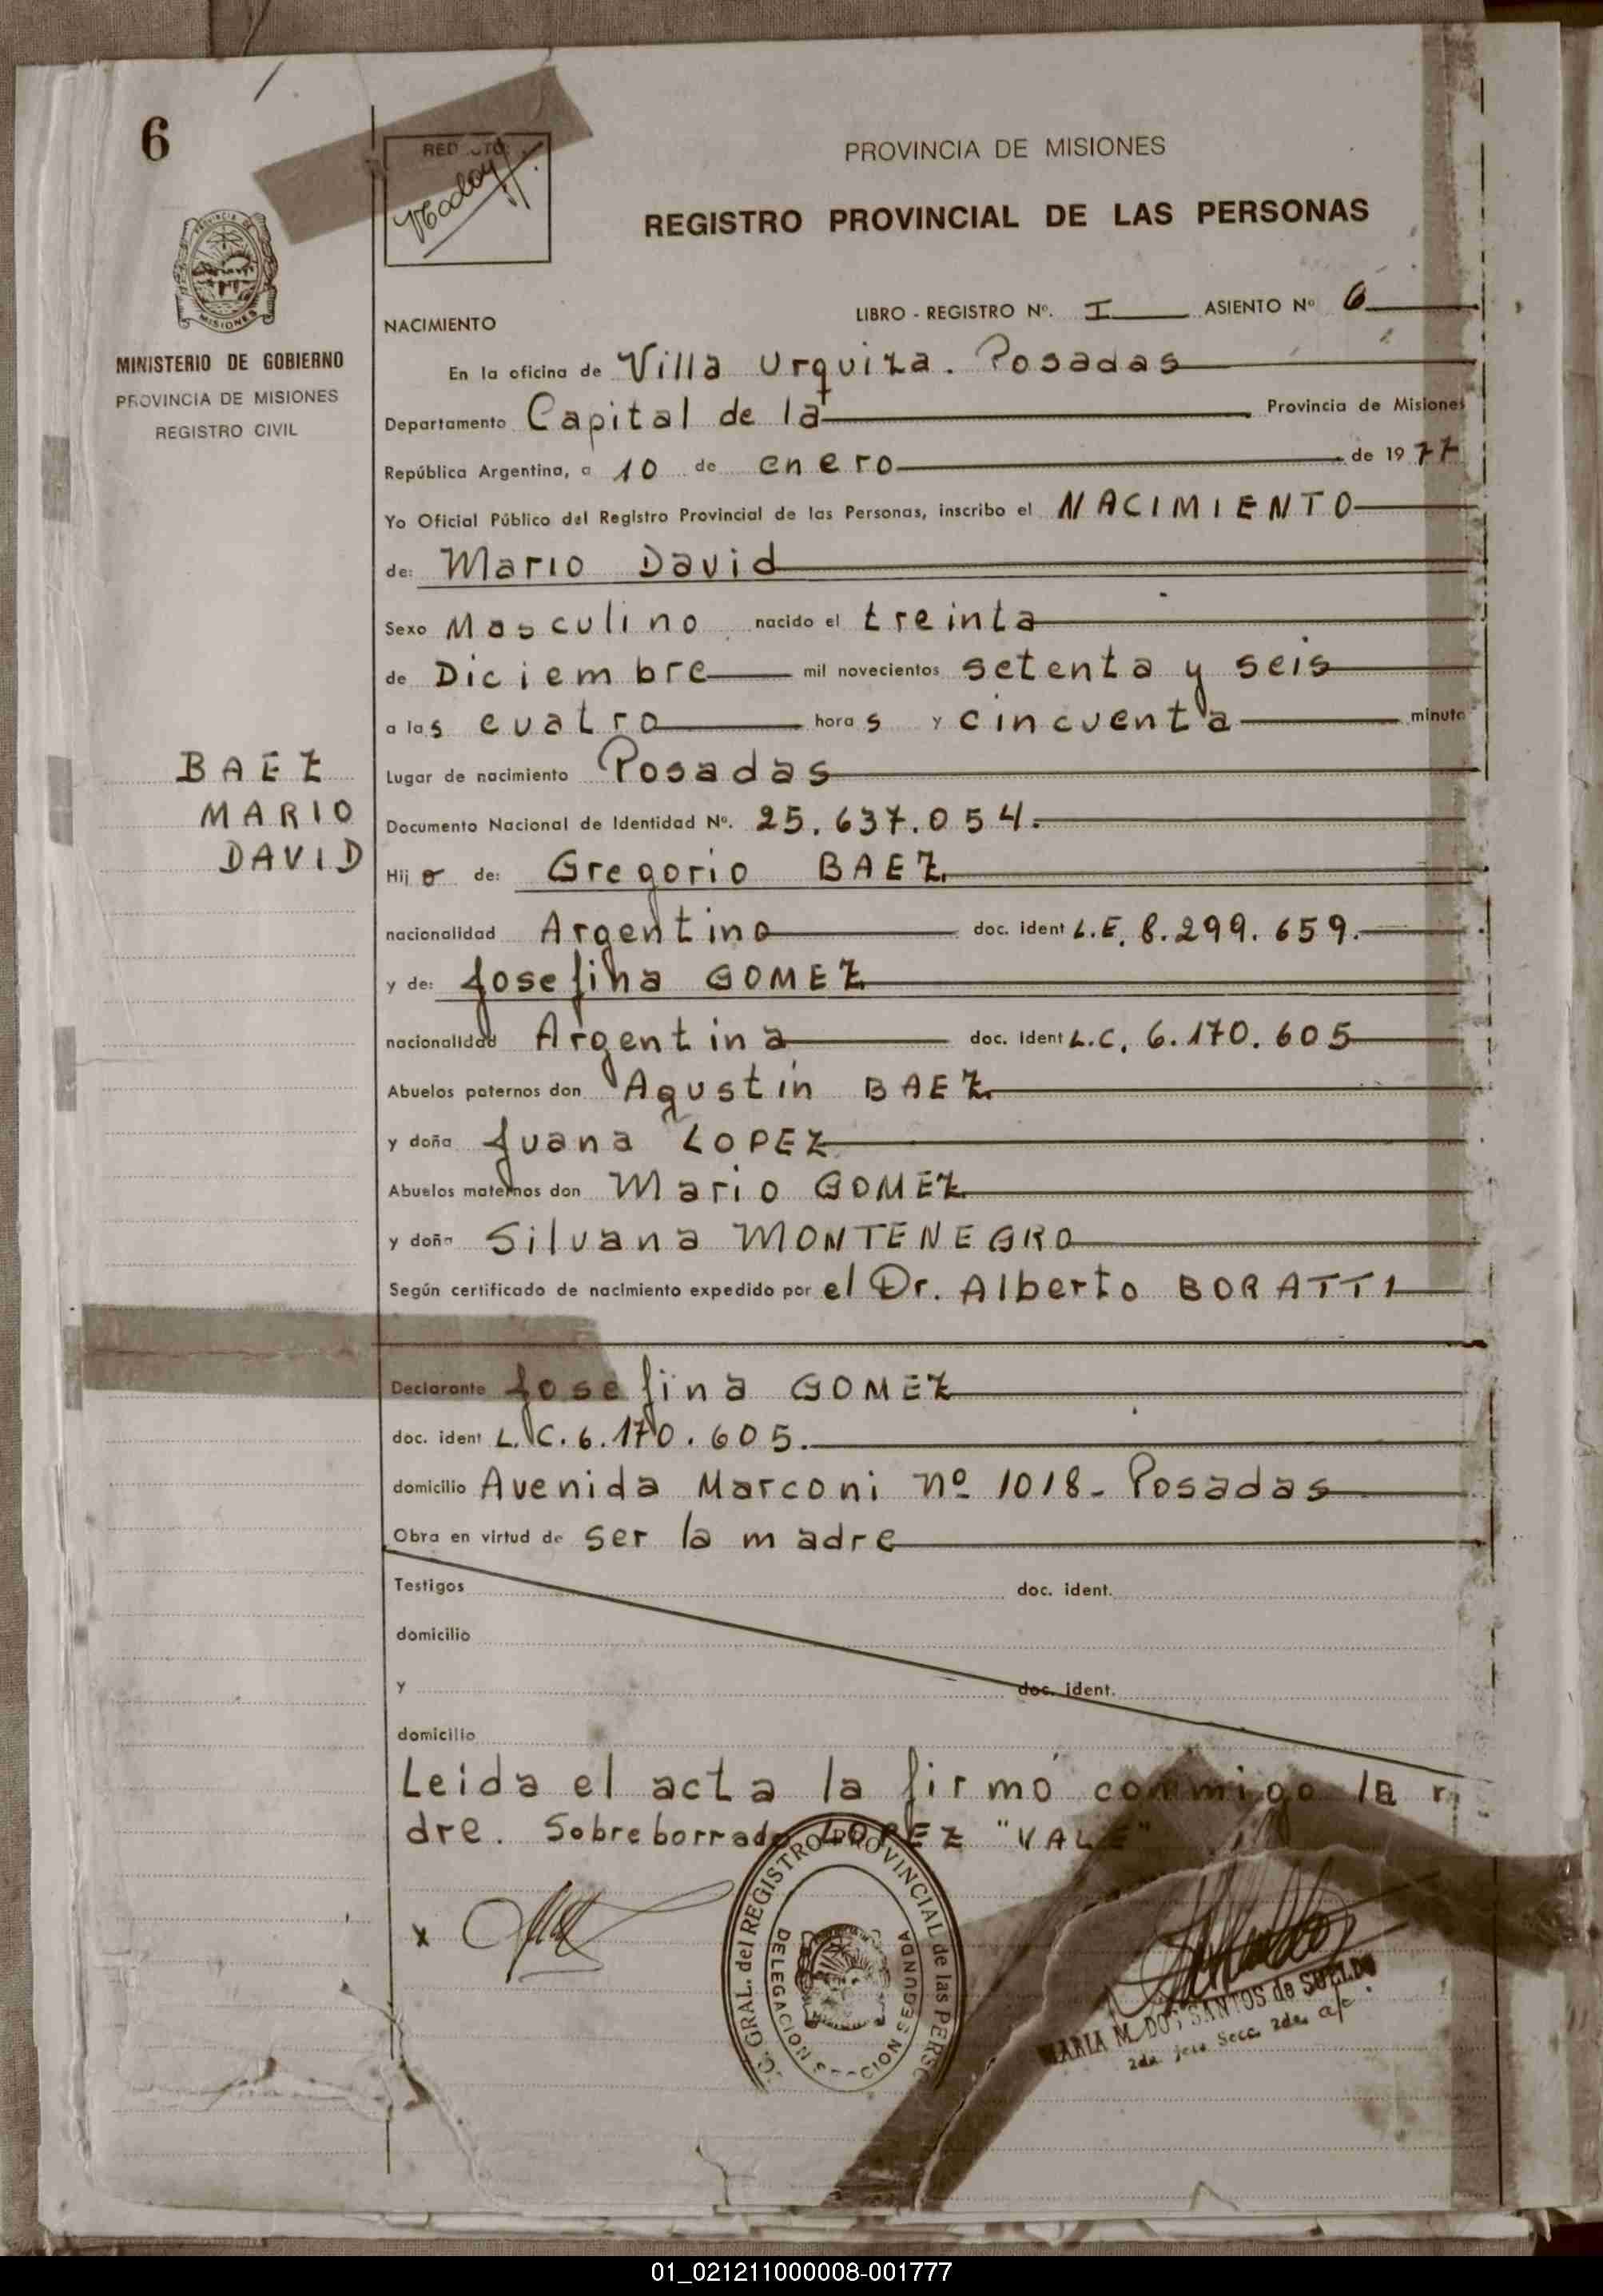 6
PROVINCIA DE MISIONES
REGISTRO PROVINCIAL DE LAS PERSONAS
PROVINCIA DE
MISIONES
MINISTERIO DE GOBIERNO
PROVINCIA DE MISIONES
REGISTRO CIVIL
NACIMIENTO
LIBRO - REGISTRO Nº. I ASIENTO Nº 6
En la oficina de Villa Urquiza. Posadas
Departamento Capital de la Provincia de Misiones
República Argentina, a 10 de enero de 1977
Yo Oficial Público del Registro Provincial de las Personas, inscribo el NACIMIENTO
de: Mario David
Sexo Masculino nacido el treinta
de Diciembre mil novecientos setenta y seis
a las cuatro horas y cincuenta minuto
BAEZ
MARIO
DAVID
Lugar de nacimiento Posadas
Documento Nacional de Identidad Nº. 25.637.054.
Hijo de: Gregorio BAEZ
nacionalidad Argentino doc. ident L.E. 8.299.659.
y de: Josefina GOMEZ
nacionalidad Argentina doc. ident L.C. 6.170.605
Abuelos paternos don Agustín BAEZ
y doña Juana LOPEZ
Abuelos maternos don Mario GOMEZ
y doña Silvana MONTENEGRO
Según certificado de nacimiento expedido por el Dr. Alberto BORATTI
Declarante Josefina GOMEZ
doc. ident L.C. 6.170.605.
domicilio Avenida Marconi nº 1018- Posadas
Obra en virtud de ser la madre
Testigos doc. ident.
domicilio
y doc. ident.
domicilio
Leida el acta la firmó conmigo la
dre. Sobreborrado LOPEZ "VALE"
x
GRAL. del REGISTRO PROVINCIAL de las PERSO
DELEGACION SEGUNDA
MARIA M. DOS SANTOS de SUELDO
2da Secc. 2da a/c
01_021211000008-001777